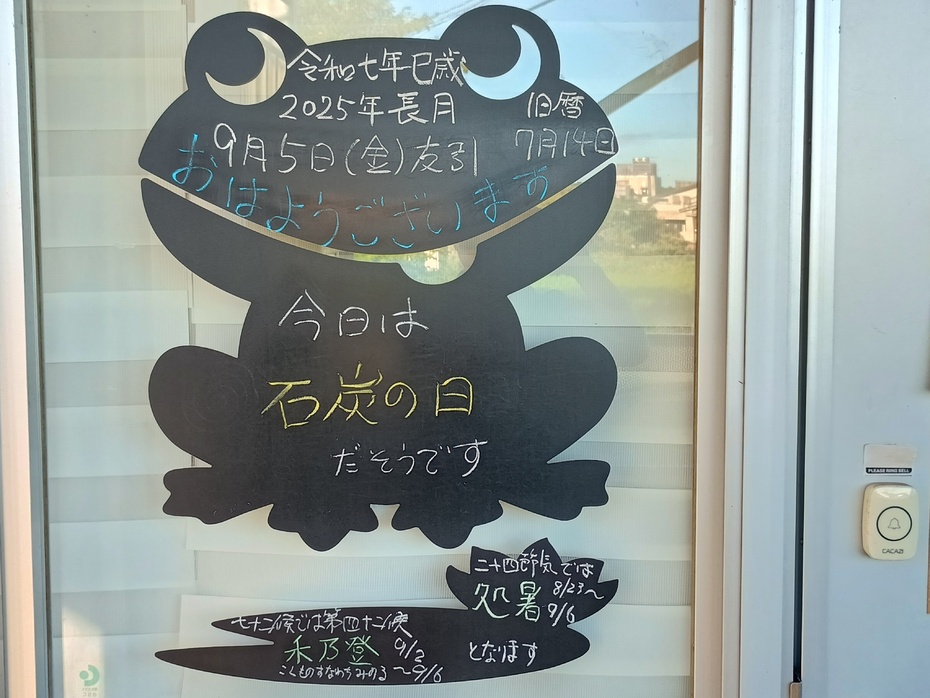 令和七年巳歳
2025年長月
旧暦
7月14日
9月5日(金)友引
おはようございます
今日は
石炭の日
だそうです
二十四節気では
処暑 8/23~
9/6
七十二候では第四十二候
禾乃登 9/2
~9/6
こくものすなわちみのる
となります
PLEASE RING BELL
CACAZI